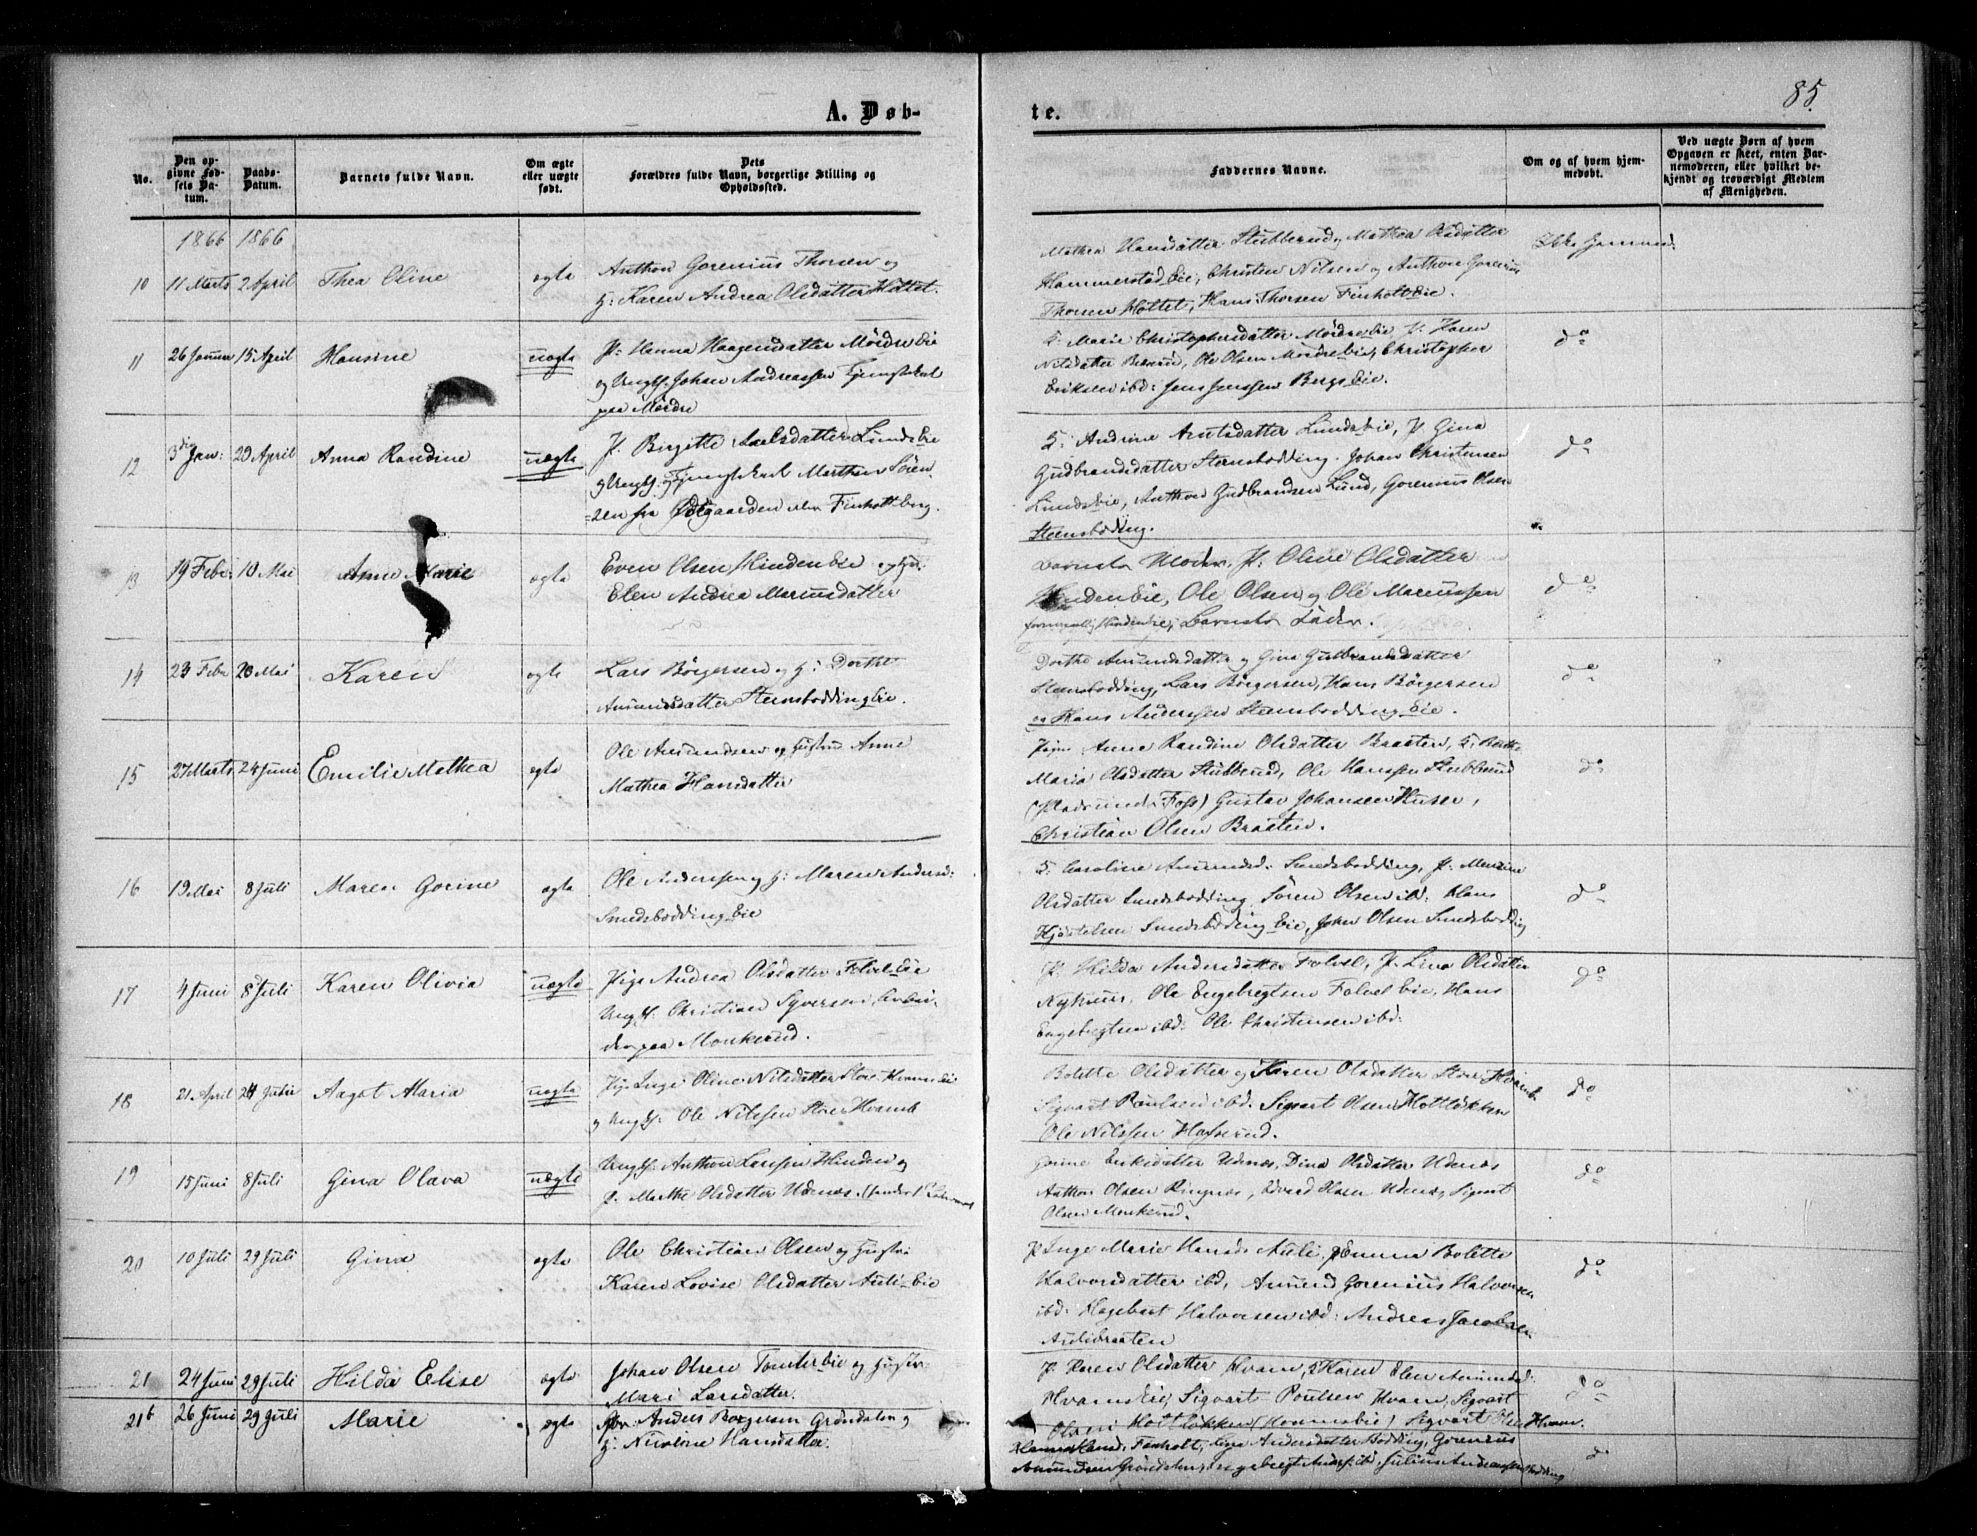 85.
A. Døb-
te.
No.
Den opgivne Fødsels Datum.
Daabs-Datum.
Barnets fulde Navn.
Om ægte eller uægte født.
Dets Forældres fulde Navn, borgerlige Stilling og Opholdssted.
Faddernes Navne.
Om og af hvem hjemmedøbt.
Ved uægte Børn af hvem Opgaven er skeet, enten Barnemoderen, eller hvilket bekjendt og troværdigt Medlem af Menigheden.
1866 1866
10 11 Marts 2 April Thea Oline ægte
Anthon Gorenius Thorsen og
H: Karen Andrea Olsdatter Holtet.
Mathea Hansdatter Stubberud, Mathea Olsdatter
Hammerstad Eie, Christen Nilsen og Anthon Gorenius
Thorsen Holtet, Hans Thorsen Finholt Eie.
Ikke
11 26 Januar 15 April Hansine uægte
P: Hanna Haagensdatter Mørdre Eie
og Ungk. Johan Andreassen Tjenestekarl
paa Mørdre
Marie Christophersdatter Mørdre Eie P: Karen
Nilsdatter Ole Olsen Mørdre Eie, Christopher
Eriksen ibd: Jens Jenssen Bergs Eie.
do
12 3die Jan: 29 April Anna Randine uægte
P. Birgitte Axelsdatter Lunds Eie
og Ungk. og Tjenestekarl Marthin Søren-
=sen fra Ødegaarden Finholt berg.
Andrine Lunds Eie, P. Gina
Gudbrandsdatter Steensbødding. Johan Christensen
Lunds Eie, Anthon Gudbrandsen Lund, Gorenius Olsen
Steensbødding.
do
13 19 Febr: 10 Mai Anne Marie ægte
Even Olsen Hinden Eie og H.
Elen Andrea Mariusdatter
Barnets Moder, P. Oline Olsdatter
Hinden Eie, Ole Olsen og Ole Mariussen
Hinden Eie, Barnets Fader.
do
14 23 Febr 20 Mai Karen ægte
Lars Børgersen og H: Dorthe
Amundsdatter Steensbødding Eie.
Dorthe Amundsdatter og Gina Gulbrandsdatter
Steensbødding, Lars Børgersen, Hans Børgersen
og Hans Andersen Steensbødding Eie.
do
15 27 Marts 24 Juni Emilie Mathea ægte
Ole Amundsen og Hustru Anne
Mathea Hansdatter
Pigen Anne Randine Olsdatter Braaten,
Maria Olsdatter Stubberud, Ole Hanssen Stubberud
Gustav Johansen Huser,
Christian Olsen Braaten.
do
16 19 Mai 8 Juli Maren Gorine ægte
Ole Anderssen og H: Maren Andersd:
Smedsbødding Eie
Caroline Amundsd: Smedsbødding, P:
Olsdatter Smedsbødding, Søren Olsen ibd: Hans
Smedsbødding Eie, Johan Olsen Smedsbødding
do
17 4 Juni 8 Juli Karen Olivia uægte
Pige Andrea Olsdatter Folvel Eie
Ungk. Christian Syversen, Arbei-
der paa Monkerud.
P. Hilda Andersdatter Folvel, P. Lina Olsdatter
Ole Engebregtsen Folvel Eie, Hans
Engebregtsen ibd: Ole Christensen ibd:
do
18 21 April 24 Juni Aagot Maria uægte
Pige Inge Oline Nilsdatter Store Hvams Eie
og Ungk: Ole Nilssen Store Hvamb
Bolette Olsdatter og Karen Olsdatter Store Hvamb
Sigvart Poulsen ibd. Sigvart Olsen Holtløkken
Ole Nilssen
do
19 15 Juni 8 Juli Gina Olava uægte
Ungk. Anthon Larssen Hinden og
P. Marthe Olsdatter Udenæs.
Gorine Eriksdatter Udnæs, Dina Olsdatter Udenæs
Anthon Olsen Ringnæs, Edvard Udenæs, Sigvart
Olsen Monkerud.
do
20 10 Juli 29 Juli Gina ægte
Ole Christian Olsen og Hustru
Karen Lovise Olsdatter Auli Eie
P Inge Marie Hansd: Auli, P Emma Bolette
Halvorsdatter ibd, Amund Gorenius Halvorsen
ibd: Hagebart Halvorsen ibd: Andreas Jacobsen
Aulibraaten
do
21 24 Juni 29 Juli Hilda Elise ægte
Johan Olsen Tomter Eie og Hustru
Mari Larsdatter.
P. Karen Olsdatter Hvam, Karen Elen Amundsd:
Hvams Eie, Sigvart Poulsen Hvam, Sigvart
Olsen Holtløkken (Hvams Eie) Sigvart Olsen Hvam.
do
21b 26 Juni 29 Juli Marie ægte
Anders Borgersen Grøndalen og
H: Nicoline Hansdatter.
Finholt, Andersdatter Bødding, Gorenius
Amundsen Grøndalen, Engebregt Anders. ibd, Julius Anderssen Bødding
do